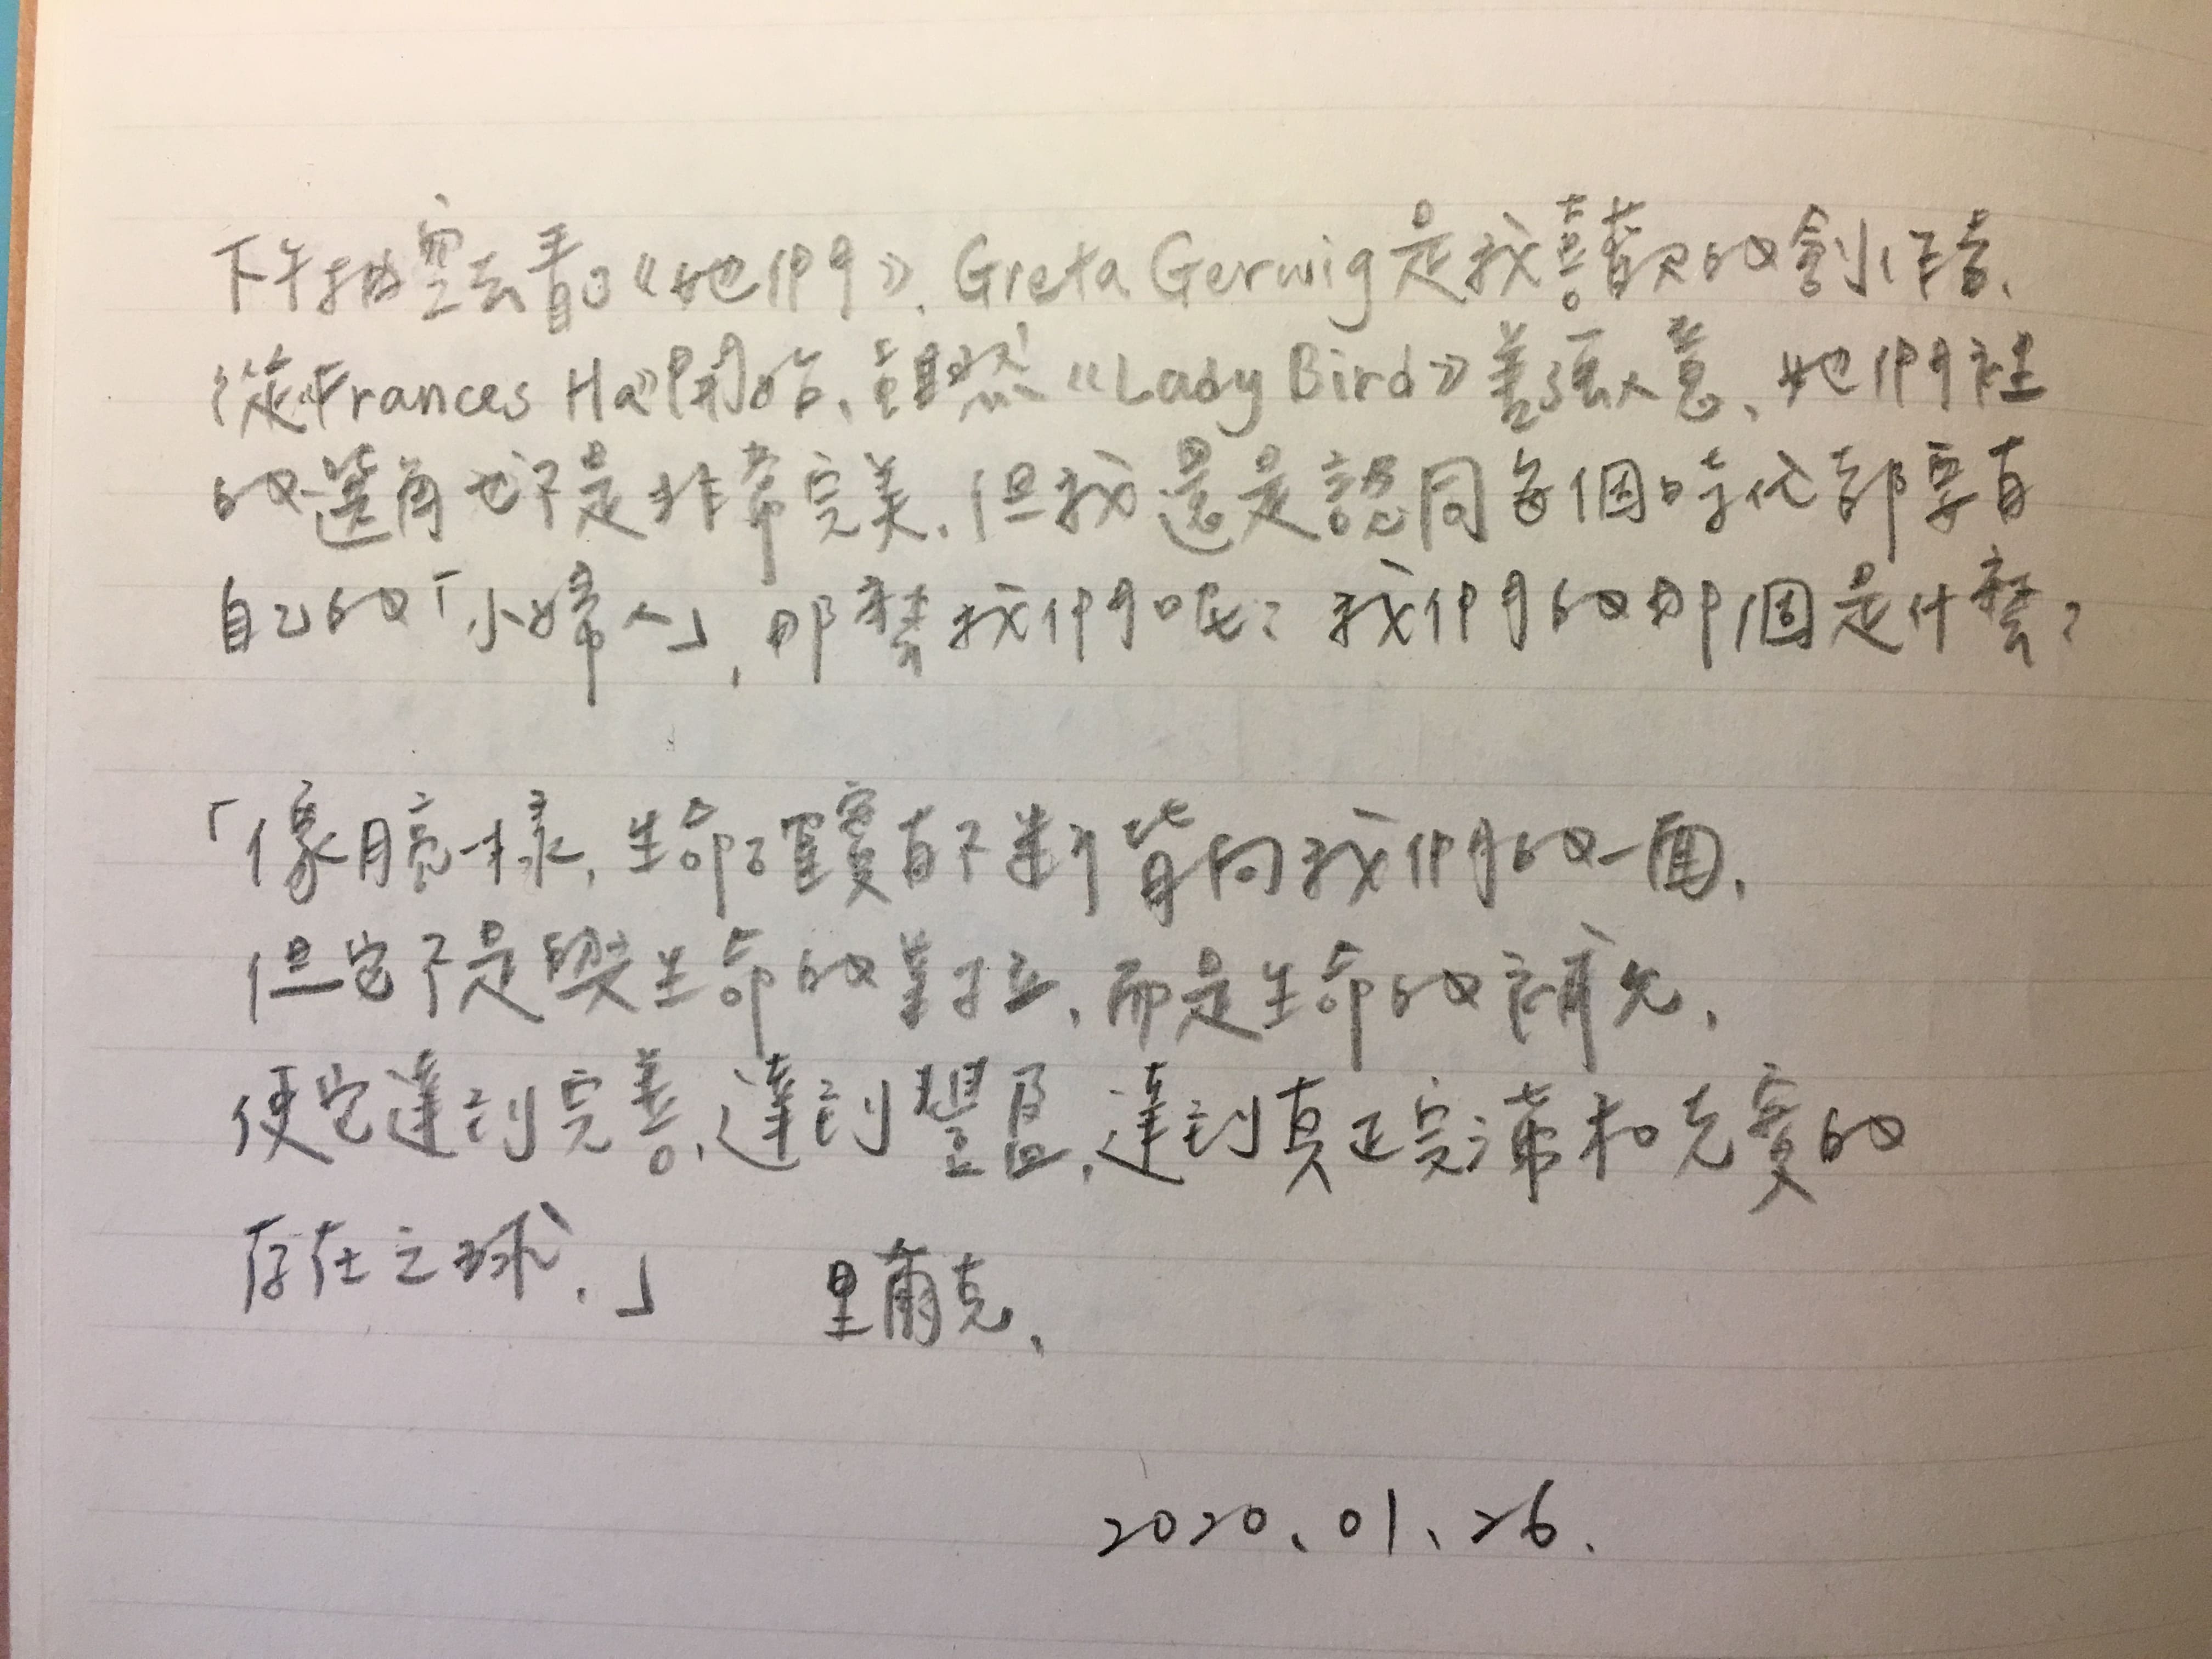 下午抽空去看了《她們》. Greta Gerwig是我喜歡的創作者、
從《Frances Ha》開始、雖然《Lady Bird》差強人意、她們裡
的選角也不是非常完美、但我還是認同每個時代都要有
自己的「小婦人」, 那麼我們呢？我們的那個是什麼？
「像月亮一樣, 生命確實有不斷背向我們的一面、
但它不是與生命的對立、而是生命的補充、
使它達到完善、達到豐盈、達到真正完滿和充實的
存在之球、」 里爾克、
2020、01、26、